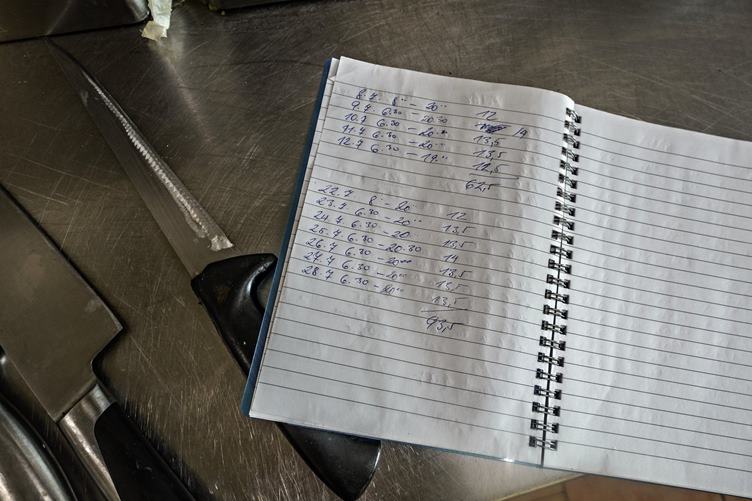 8.7. 8°° - 20°° 12
9.7. 6.30 - 20.30 14
10.7 6.30 - 20°° 13,5
11.7 6.30 - 20°° 13,5
12.7 6.30 - 19°° 12,5
22.7 8 - 20 12
23.7 6.30 - 20°° 13,5
24.7 6.30 - 20 13,5
25.7 6.30 - 20.30 14
26.7 6.30 - 20°° 13,5
27.7 6.30 - 20°° 13,5
28.7 6.30 - 20°° 13,5
93,5